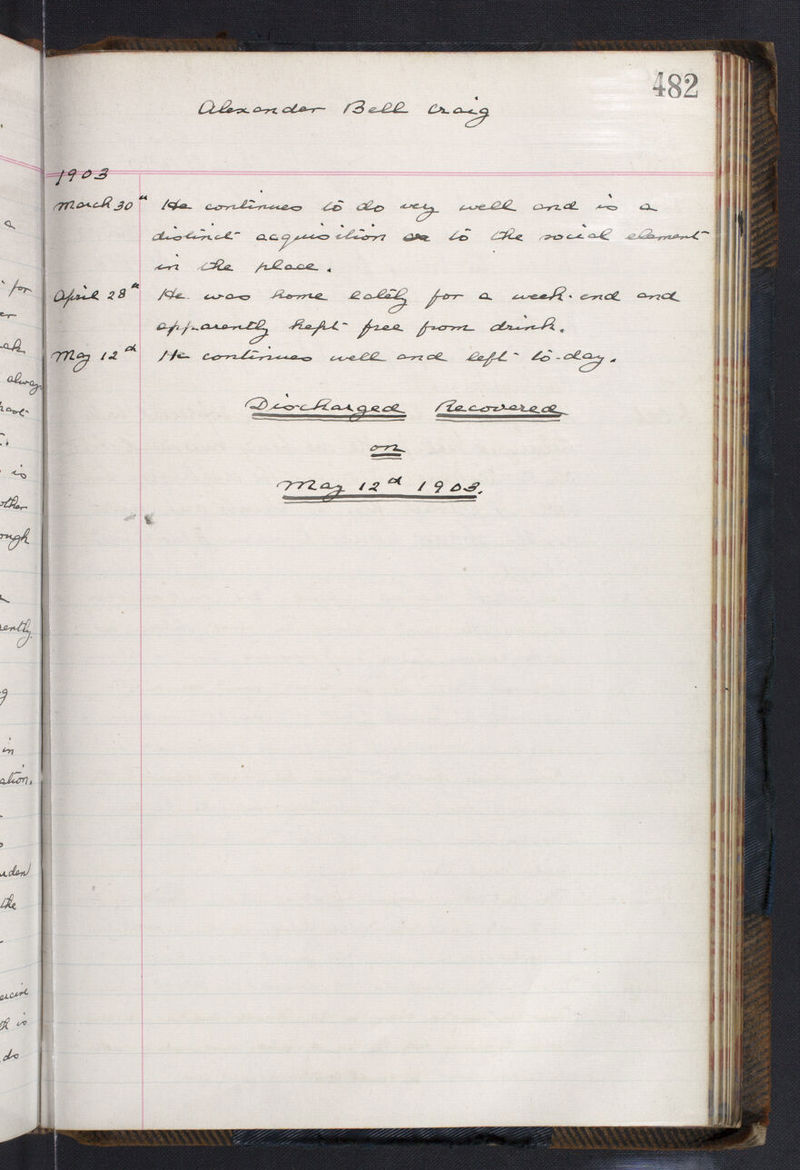 482
Alexander Bell Craig
1903
March 30th He continues to do very well and is a
distinct acquisition to the social element
in the place.
April 28th He was home lately for a week-end and
apparently kept free from drink.
May 12th He continues well and left to-day.
Discharged Recovered
on
May 12th 1903.
a
for
always
is
other
ently
g
in
ation.
the
is
do